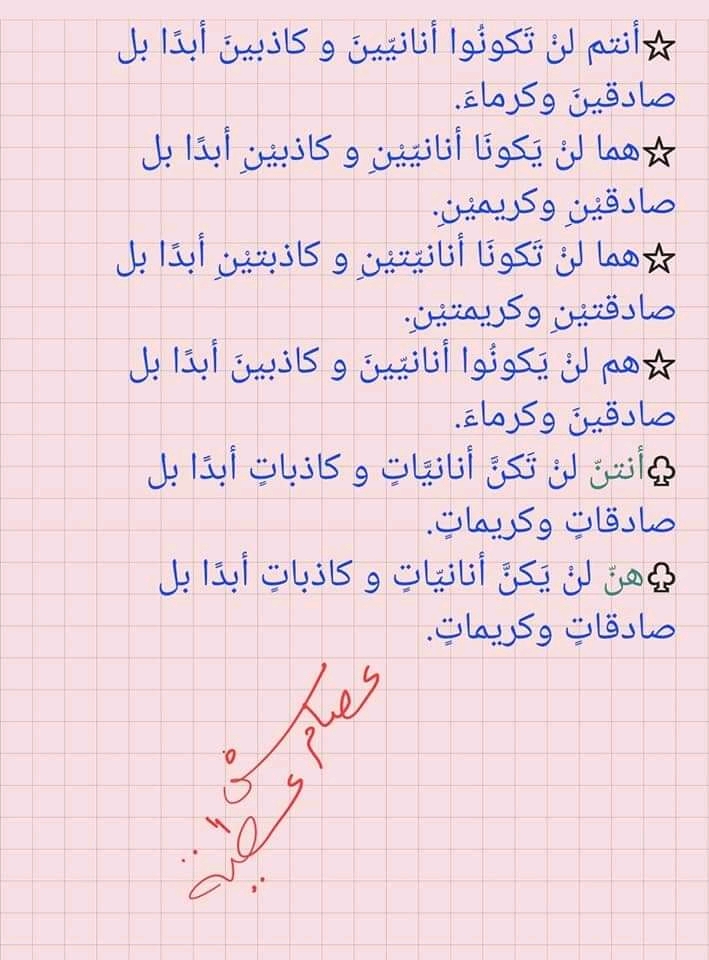 ☆أنتم لنْ تَكونُوا أنانيّينَ و كاذبينَ أبدًا بل
صادقينَ وكرماءَ.
☆هما لنْ يَكونَا أنانيّيْنِ و كاذبيْنِ أبدًا بل
صادقيْنِ وكريميْنِ.
☆هما لنْ تَكونَا أنانيّتيْنِ و كاذبتيْنِ أبدًا بل
صادقتيْنِ وكريمتيْنِ.
☆هم لنْ يَكونُوا أنانيّينَ و كاذبينَ أبدًا بل
صادقينَ وكرماءَ.
♧أنتنّ لنْ تَكنَّ أنانيَّاتٍ و كاذباتٍ أبدًا بل
صادقاتٍ وكريماتٍ.
♧هنّ لنْ يَكنَّ أنانيّاتٍ و كاذباتٍ أبدًا بل
صادقاتٍ وكريماتٍ.
عصام
عطية